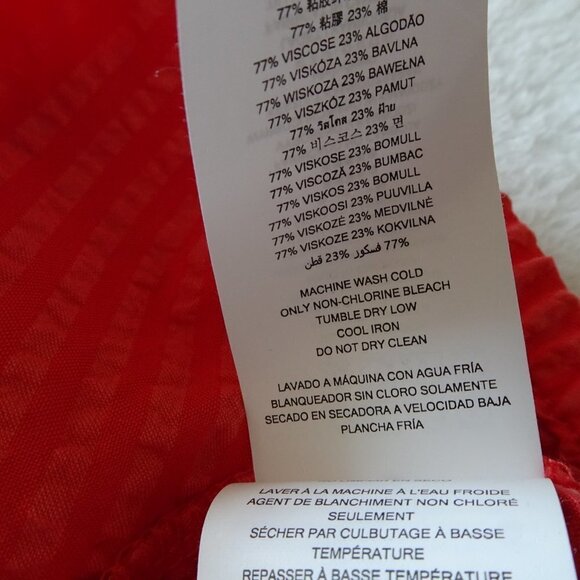 77% 粘膠 23% 棉
77% VISCOSE 23% ALGODÃO
77% VISKÓZA 23% BAVLNA
77% WISKOZA 23% BAWEŁNA
77% VISZKÓZ 23% PAMUT
77% วิสโคส 23% ฝ้าย
77% 비스코스 23% 면
77% VISKOSE 23% BOMULL
77% VISCOZĂ 23% BUMBAC
77% VISKOS 23% BOMULL
77% VISKOOSI 23% PUUVILLA
77% VISKOZĖ 23% MEDVILNĖ
77% VISKOZE 23% KOKVILNA
77% فسكوز 23% قطن
MACHINE WASH COLD
ONLY NON-CHLORINE BLEACH
TUMBLE DRY LOW
COOL IRON
DO NOT DRY CLEAN
LAVADO A MÁQUINA CON AGUA FRÍA
BLANQUEADOR SIN CLORO SOLAMENTE
SECADO EN SECADORA A VELOCIDAD BAJA
PLANCHA FRÍA
LAVER À LA MACHINE À L'EAU FROIDE
AGENT DE BLANCHIMENT NON CHLORÉ
SEULEMENT
SÉCHER PAR CULBUTAGE À BASSE
TEMPÉRATURE
REPASSER À BASSE TEMPÉRATURE